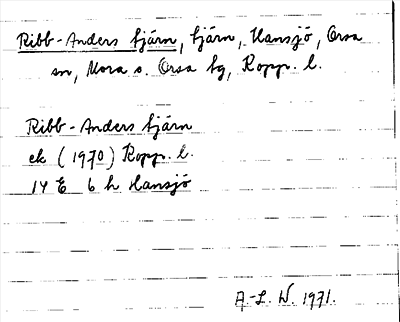 Ribb-Anders tjärn, tjärn, Hansjö, Orsa
sn, Mora o. Orsa tg, Kopp. l.
Ribb-Anders tjärn
ek (1970) Kopp. l.
14 E 6 h Hansjö
A.-L. W. 1971.